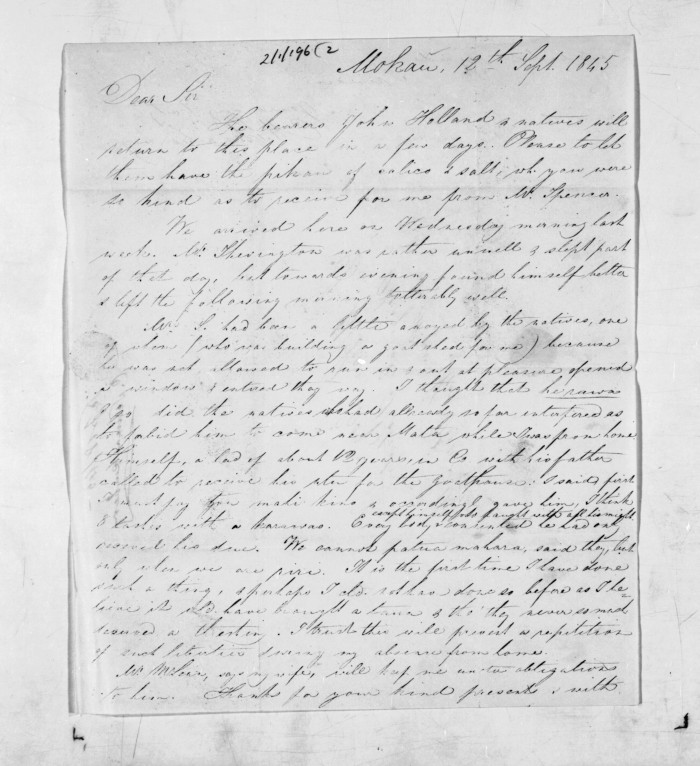 2/1/196(2
Mokau, 12th Sept. 1845
Dear Sir
The bearers John Holland & natives will
return to this place in a few days. Please to let
them have the pikau of calico & salt, wh you were
so kind as to receive for me from Mr. Spencer.
We arrived here on Wednesday morning last
week. Mr. Skevington was rather unwell & slept part
of that day, but towards evening found himself better
& left the following morning tollerably well.
Mrs S. had been a little anoyed by the natives, one
of whom (who was building a goat shed for me) because
he was not allowed to run in & out at pleasure opened
a window & entered that way. I thought that he
did the natives had already so far interfered as
to forbid him to come near while I was from home
Himself, a lad of about years, in Co with his father
called to receive his utu for the goathouse. I said first
I must pay for mahi kino & accordingly gave him, I think
8 lashes with a karauau. Every body contented he had only
received his due. We cannot patua mahara, said they, but
only when we are riri. It is the first time I have done
such a thing, & perhaps I shd. not have done so before as I be-
lieve it wld. have brought a taua & tho' they never so much
deserved a thrashing. I trust this will prevent a repetition
of such during my absence from home.
Mr. , says my wife, will keep me under obligation
to him. Thanks for your kind present & with